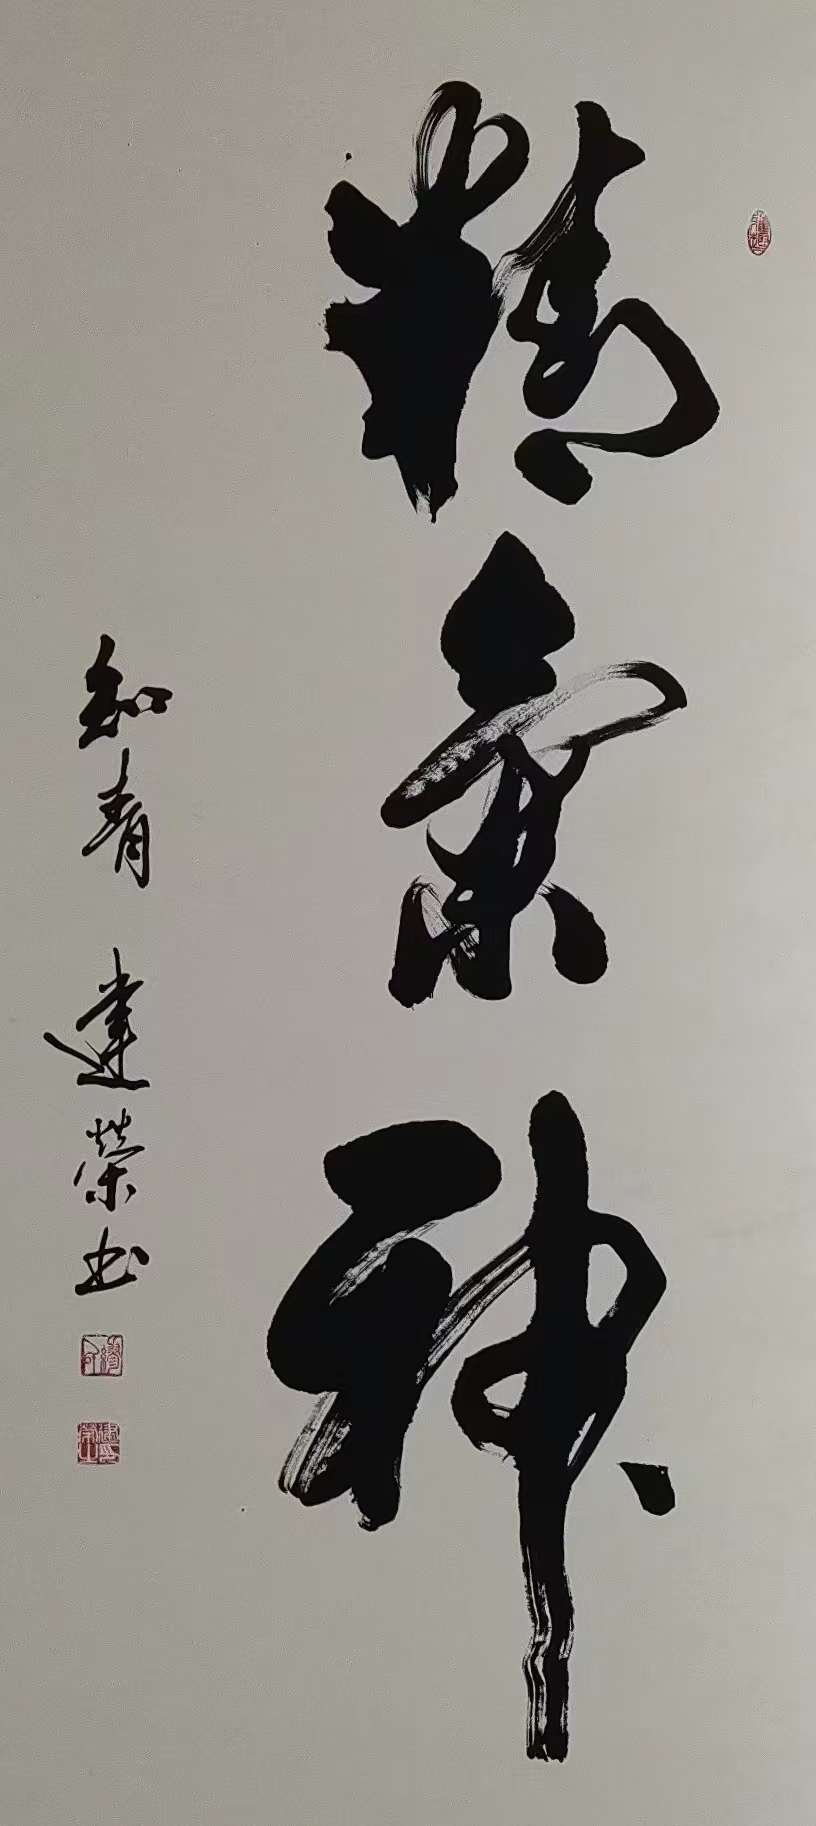 精氣神
知青 建榮书